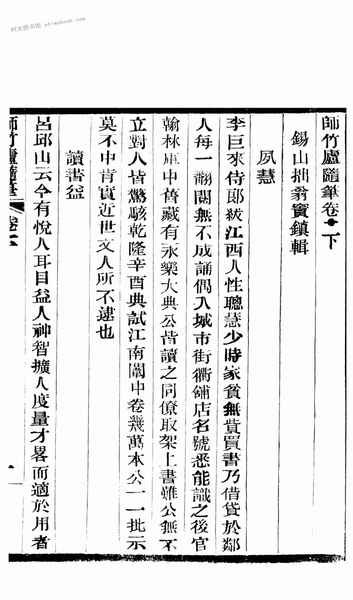 師竹廬隨筆卷下
錫山拙翁竇鎮輯
夙慧
李巨來侍郎紱江西人性聰慧少時家貧無貲買書乃借貸於鄰
人每一翻閱無不成誦偶入城市街衢舖店名號悉能識之後官
翰林庫中舊藏有永樂大典公皆讀之同僚取架上書難公無不
立對人皆驚駭乾隆辛酉典試江南闈中卷幾萬本公一一批示
莫不中肯實近世文人所不逮也
讀書益
呂邱山云今有悅人耳目益人神智擴人度量才畧而適於用者
師竹廬隨筆